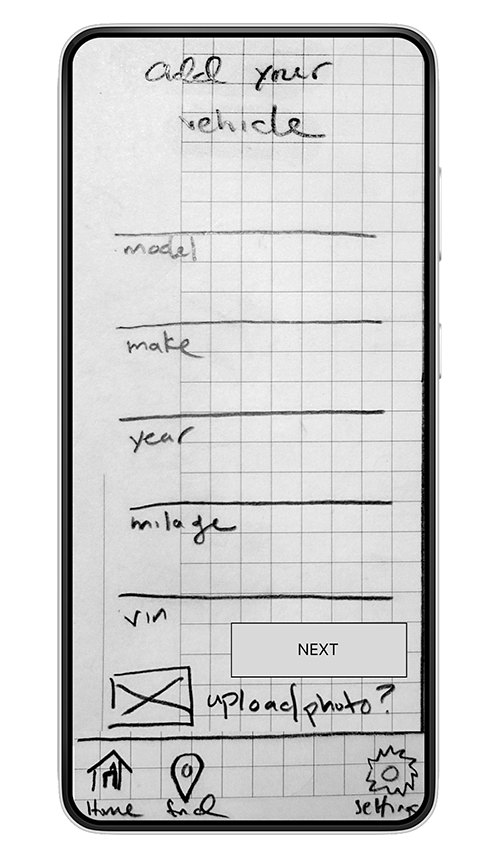 add your
vehicle
model
make
year
milage
vin
NEXT
upload photo?
Home find settings